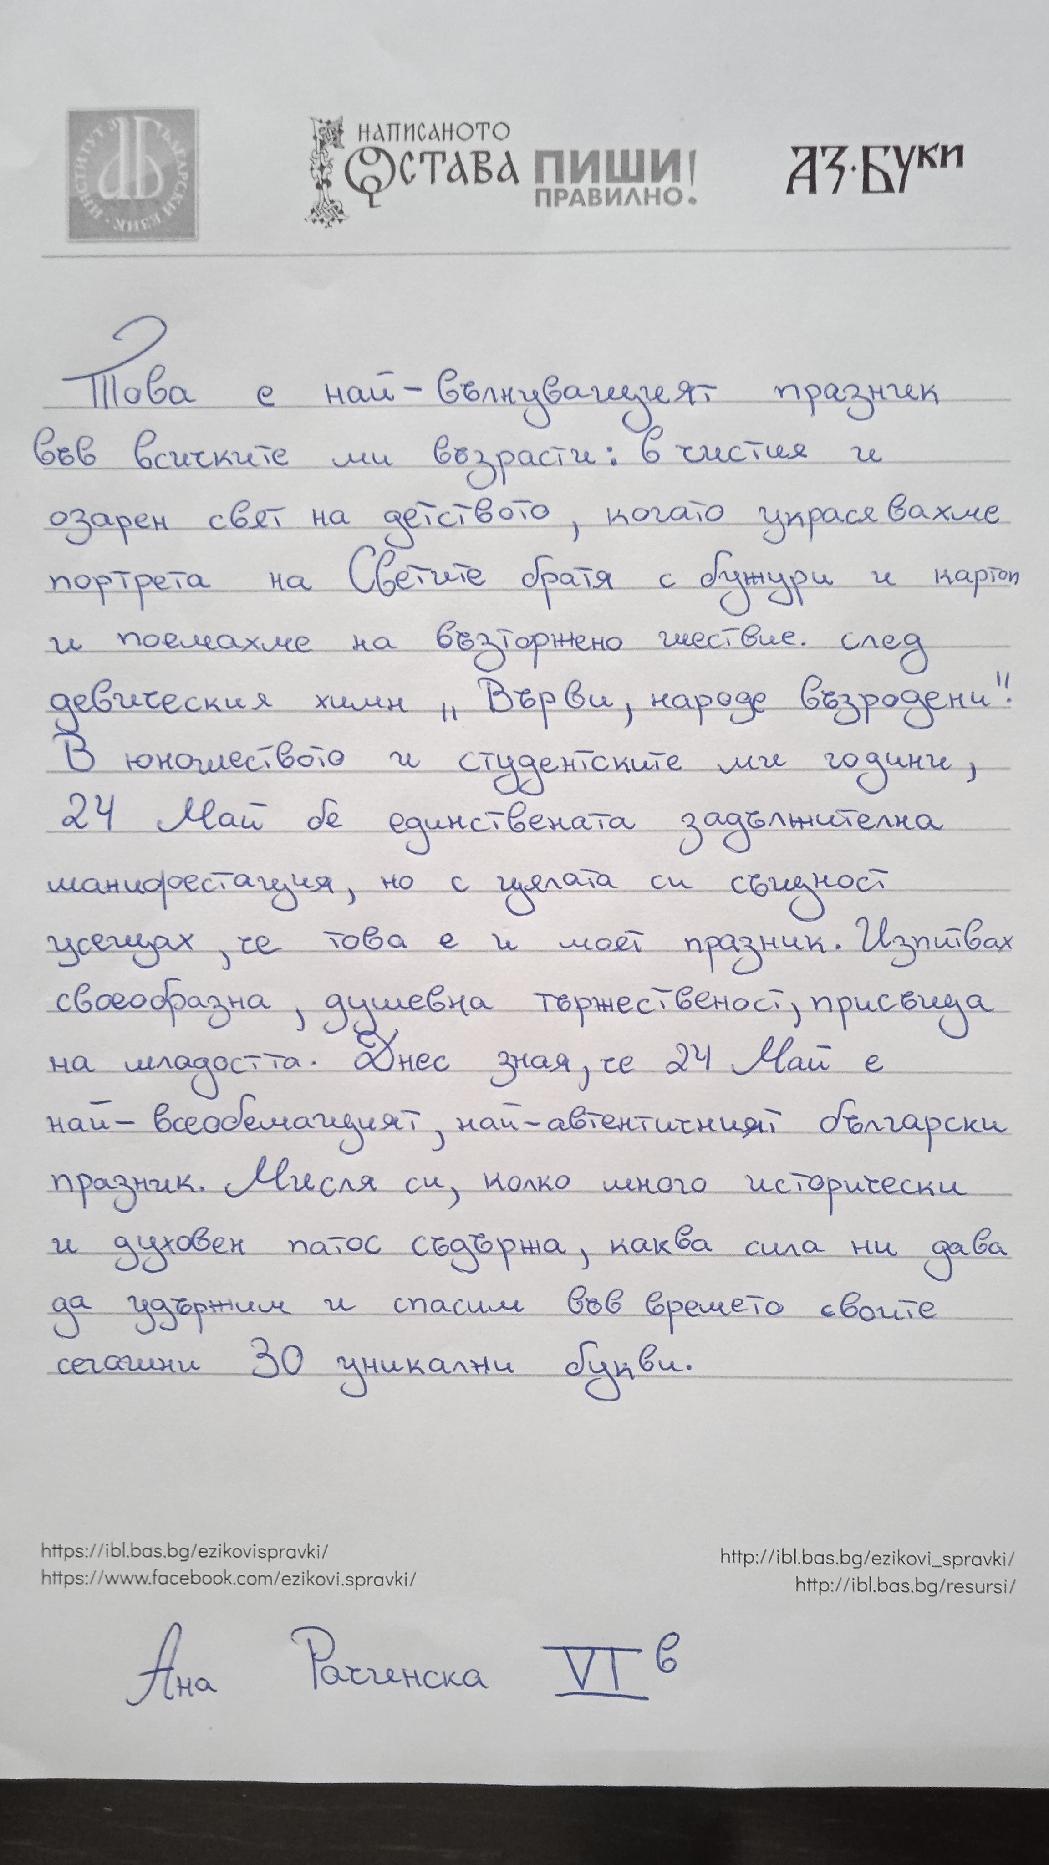 ИНСТИТУТ ЗА БЪЛГАРСКИ ЕЗИК
НАПИСАНОТО
ОСТАВА ПИШИ
ПРАВИЛНО!
АЗ·БУКИ
Това е най-вълнуващият празник
във всичките ми възрасти: в чистия и
озарен свят на детството, когато украсявахме
портрета на Светите братя с бужури и картоп
и поемахме на възторжено шествие. след
девическия химн „Върви, народе възродени"!
В юношеството и студентските ми години,
24 Май бе единствената задължителна
манифестация, но с цялата си същност
усещах, че това е и моят празник. Изпитвах
своеобразна, душевна тържественост, присъща
на младостта. Днес зная, че 24 Май е
най-всеобемащият, най-автентичният български
празник. Мисля си, колко много исторически
и духовен патос съдържа, каква сила ни дава
да удържим и спасим във времето своите
сегашни 30 уникални букви.
https://ibl.bas.bg/ezikovispravki/
https://www.facebook.com/ezikovi.spravki/
http://ibl.bas.bg/ezikovi_spravki/
http://ibl.bas.bg/resursi/
Ана Рачинска VI в